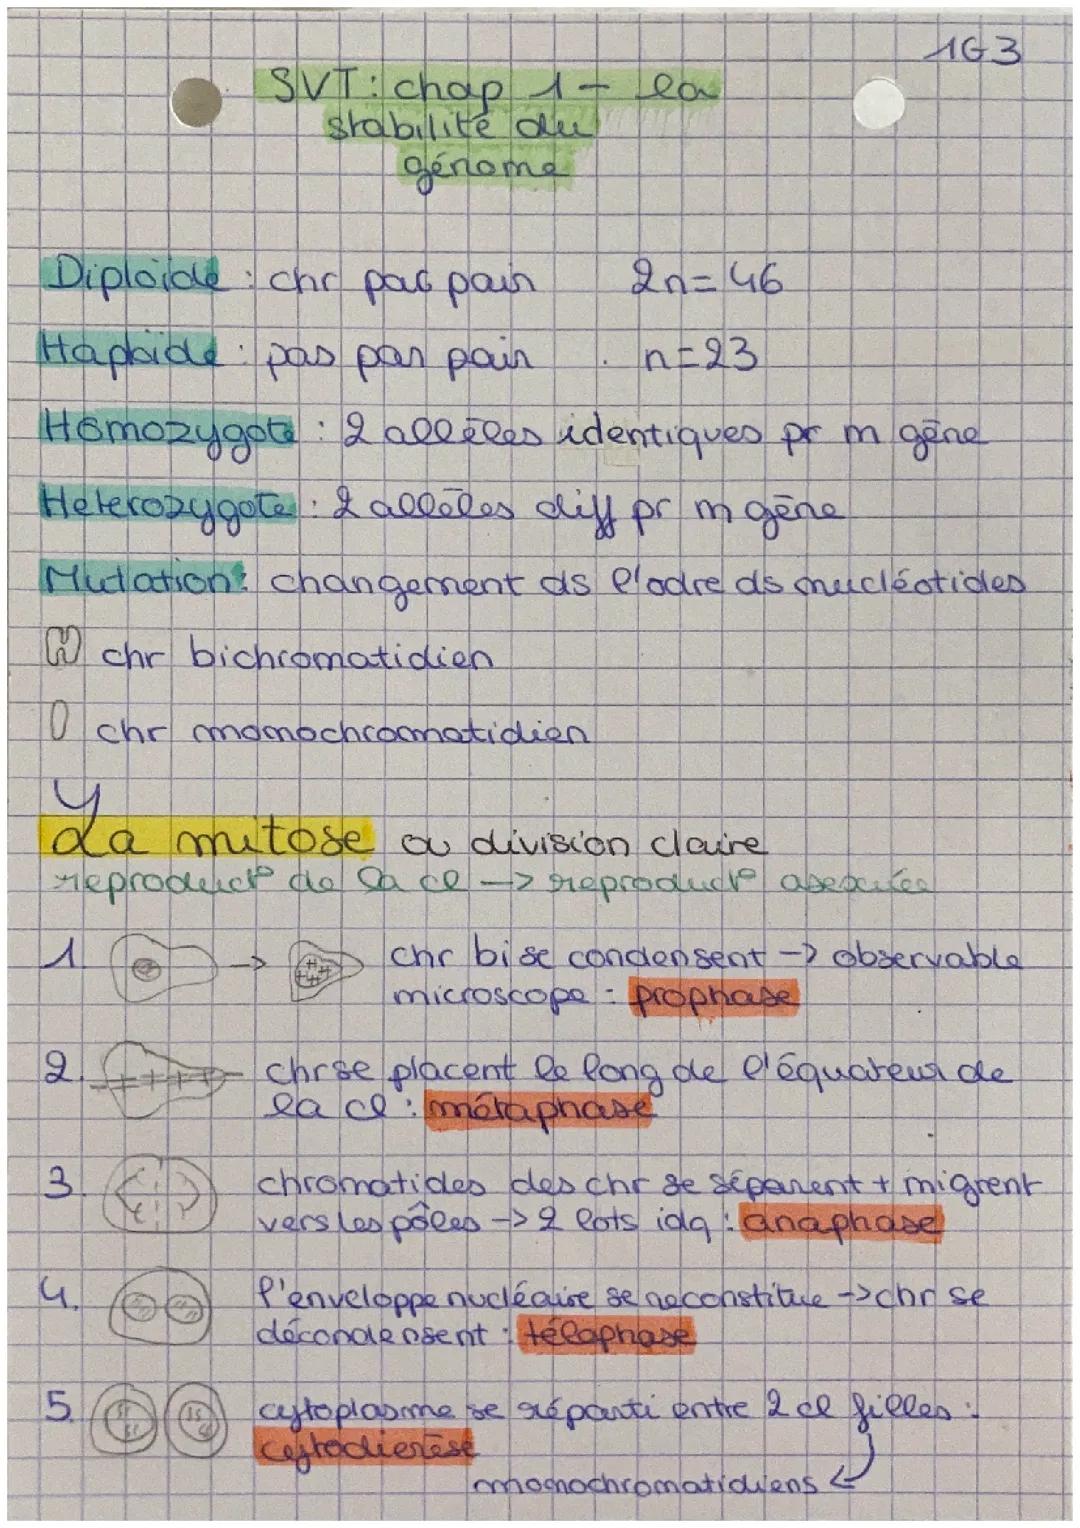 1G3
SVT: chap 1 - la
stabilité du
génome
Diploïde : chr par pair 2n=46
Haploïde : pas par pair . n=23
Homozygote : 2 allèles identiques pr m gène
Heterozygote : 2 allèles diff pr m gène
Mutation : changement ds l'odre ds nucléotides
chr bichromatidien
chr monochromatidien
La mitose ou division claire
reproduct° de la cl -> reproduct° asexuée
1. chr bi se condensent -> observable
microscope : prophase
2. chr se placent le long de l'équateur de
la cl : métaphase
3. chromatides des chr se séparent + migrent
vers les pôles -> 2 lots idq : anaphase
4. l'enveloppe nucléaire se reconstitue -> chr se
décondensent : télophase
5. cytoplasme se réparti entre 2 cl filles :
cytodierèse
monochromatidiens